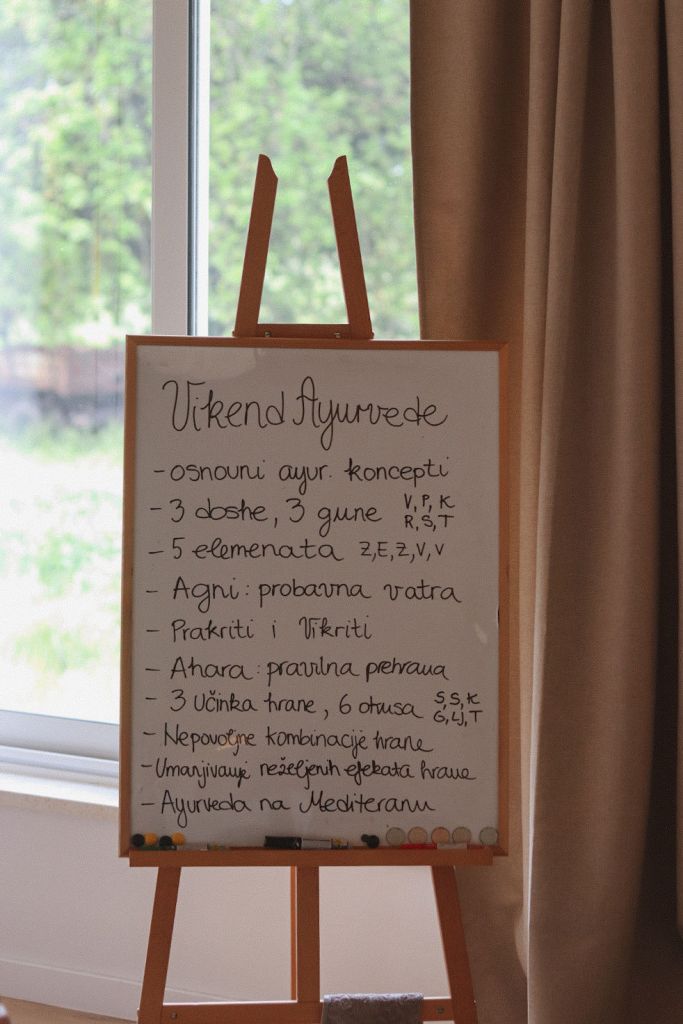 Vikend Ayurvede
- osnovni ayur. koncepti
- 3 doshe, 3 gune V, P, K
R, S, T
- 5 elemenata Z, E, Z, V, V
- Agni: probavna vatra
- Prakriti i Vikriti
- Ahara: pravilna prehrana
- 3 učinka hrane, 6 okusa S, S, K
G, LJ, T
- Nepovoljne kombinacije hrane
- Umanjivanje neželjenih efekata hrane
- Ayurveda na Mediteranu